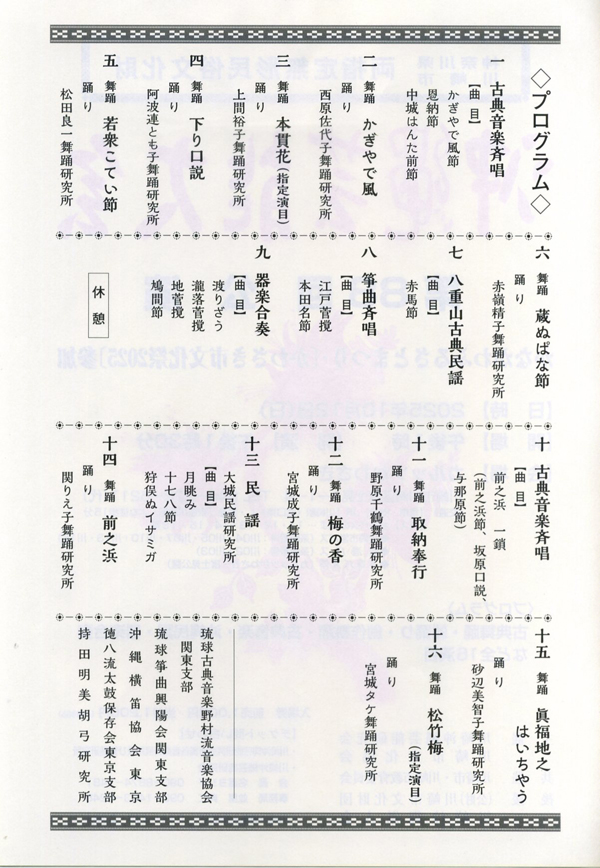 ◇プログラム◇
一 古典音楽斉唱
【曲目】
かぎやで風節
恩納節
中城はんた前節
二 舞踊 かぎやで風
踊り
西原佐代子舞踊研究所
三 舞踊 本貫花(指定演目)
踊り
上間裕子舞踊研究所
四 舞踊 下り口説
踊り
阿波連とも子舞踊研究所
五 舞踊 若衆こてい節
踊り
松田良一舞踊研究所
六 舞踊 蔵ぬぱな節
踊り
赤嶺精子舞踊研究所
七 八重山古典民謡
【曲目】
赤馬節
八 箏曲斉唱
【曲目】
江戸菅撹
本田名節
九 器楽合奏
【曲目】
渡りざう
瀧落菅撹
地菅撹
鳩間節
休憩
十 古典音楽斉唱
【曲目】
前之浜 一鎖
(前之浜節、坂原口説、
与那原節)
十一 舞踊 取納奉行
踊り
野原千鶴舞踊研究所
十二 舞踊 梅の香
踊り
宮城成子舞踊研究所
十三 民謡
大城民謡研究所
【曲目】
月眺み
十七八節
狩俣ぬイサミガ
十四 舞踊 前之浜
踊り
関りえ子舞踊研究所
十五 舞踊 眞福地之
はいちやう
踊り
砂辺美智子舞踊研究所
十六 舞踊 松竹梅
(指定演目)
踊り
宮城タケ舞踊研究所
琉球古典音楽野村流音楽協会
関東支部
琉球箏曲興陽会関東支部
沖縄横笛協会東京
徳八流太鼓保存会東京支部
持田明美胡弓研究所